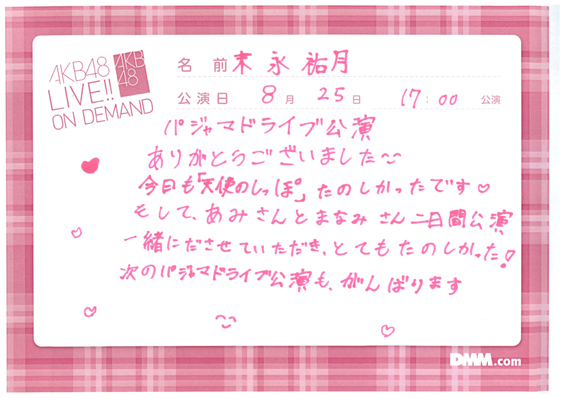 AKB48
LIVE!!
ON DEMAND
AKB
48
名 前 末永祐月
公演日 8月 25日 17:00 公演
パジャマドライブ公演
ありがとうございました
今日も「天使のしっぽ」たのしかったです♡
そして、あみさんとまなみさん二日間公演
一緒にださせていただき、とてもたのしかった!
次のパジャマドライブ公演も、がんばります
DMM.com